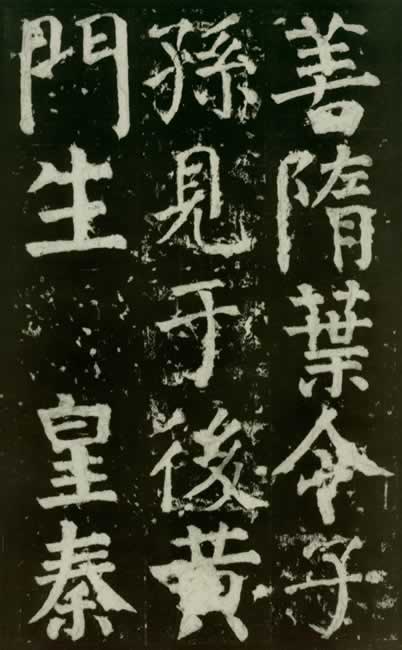 善隋葉令子
孫見于後黄
門生 皇秦